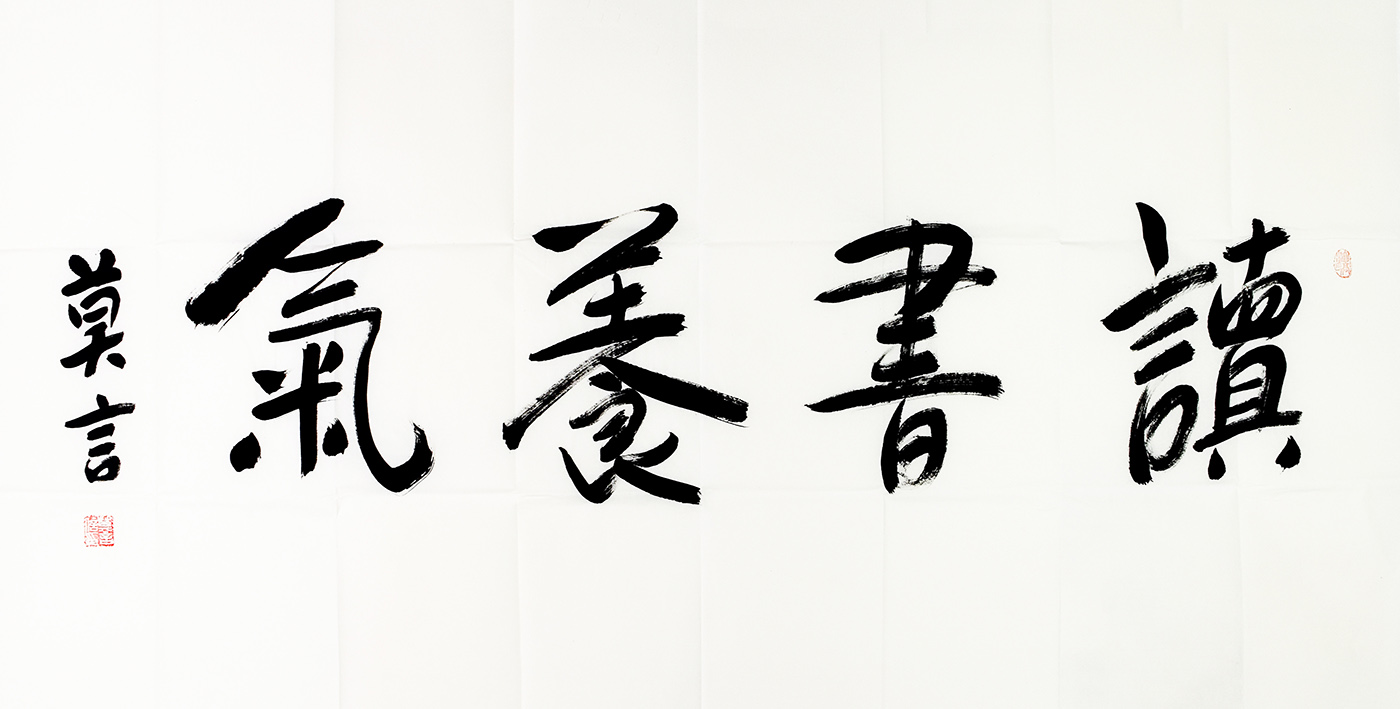 讀書養氣
莫言